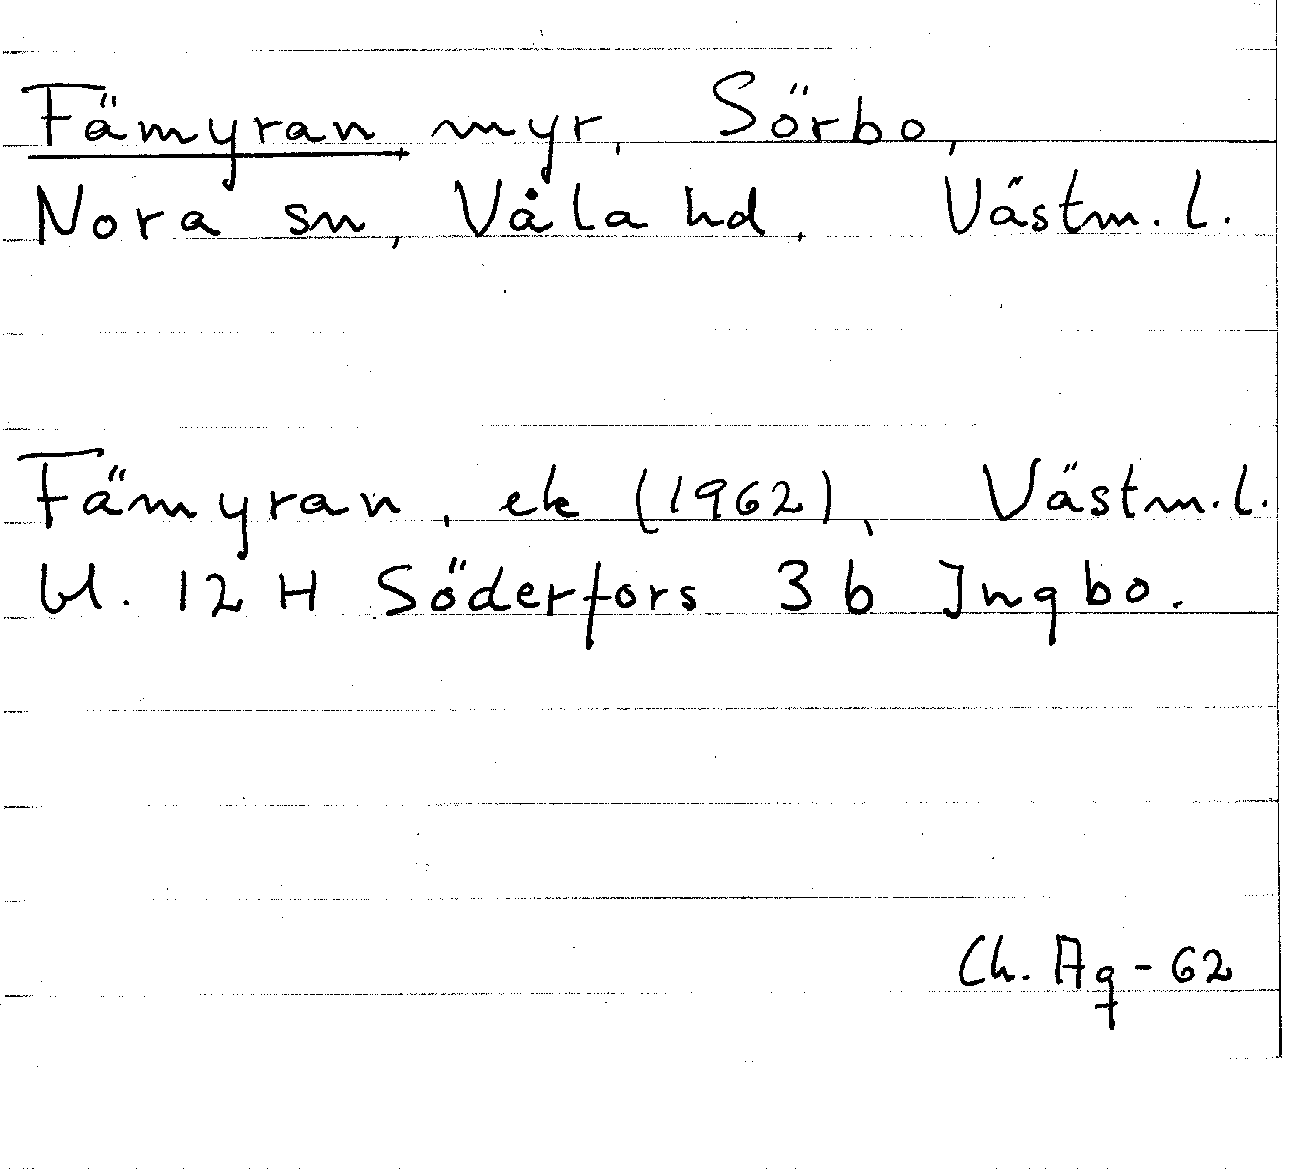 Fämyran, myr, Sörbo,
Nora sn, Våla hd, Västm. l.
Fämyran, ek (1962), Västm. l.
bl. 12 H Söderfors 3 b Ingbo.
Ch. Ag - 62